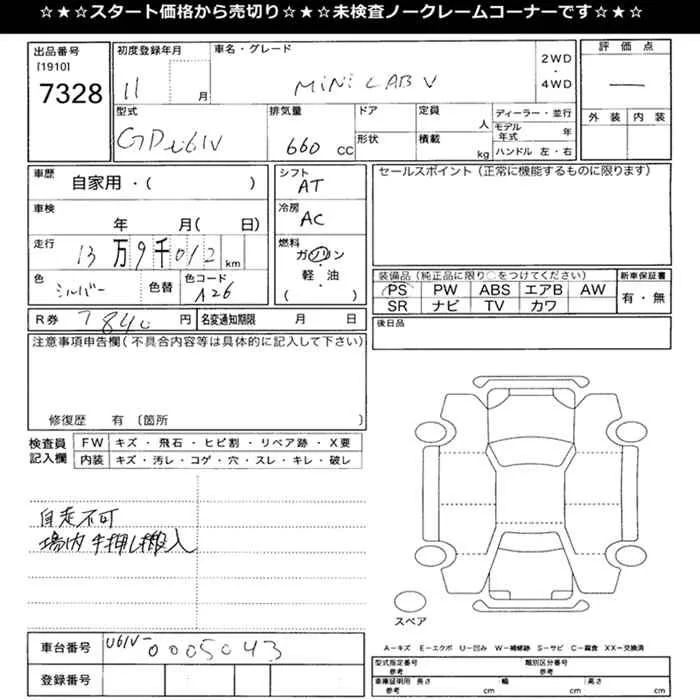 ☆★☆スタート価格から売切り☆★☆未検査ノークレームコーナーです☆★☆
出品番号
[1910]
7328
初度登録年月
11 月
車名・グレード
MiNi CAB V
2WD
・
4WD
評価点
—
外装 内装
型式
排気量
660 CC
ドア
形状
定員
人
積載
kg
ディーラー・並行
モデル年式 年
ハンドル 左・右
車歴
自家用・( )
車検
年 月( 日)
走行
13万9千012km
色
シルバー 色替
色コード
A26
シフト
AT
冷房
AC
燃料
ガソリン
・
軽・油
( )
セールスポイント(正常に機能するものに限ります)
装備品(純正品に限り○をつけてください)
PS PW ABS エアB AW
SR ナビ TV カワ
新車保証書
有・無
R券 7840円 名変通知期限 月 日
後日品
注意事項申告欄(不具合内容等は具体的に記入して下さい)
修復歴 有〔箇所 〕
検査員記入欄
FW キズ・飛石・ヒビ割・リペア跡・X要
内装 キズ・汚レ・コゲ・穴・スレ・キレ・破レ
自走不可
場内手押し搬入
スペア
車台番号 U61V-0005043
登録番号
A―キズ E―エクボ U―凹み W―補修跡 S―サビ C―腐食 XX―交換済
型式指定番号
参考
類別区分番号
参考
車庫証明用 長さ 幅 高さ
参考 cm cm cm